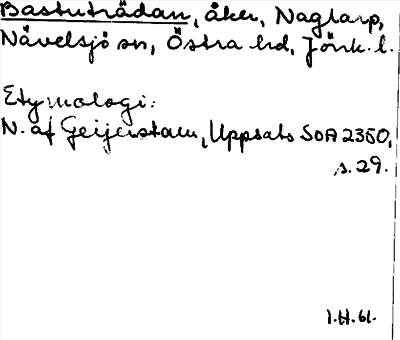 Bastuträdan, åker, Naglarp,
Nävelsjö sn, Östra hd, Jönk. l.
Etymologi:
N. af Geijerstam, Uppsats SOA 2350,
s. 29.
I.H. 61.